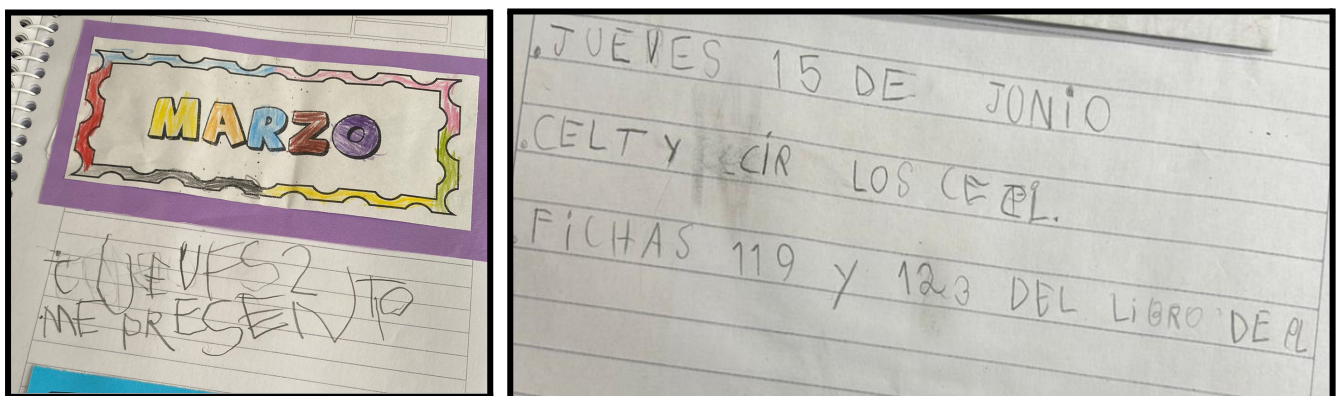 MARZO
JUEVES 2
ME PRESENTO
.JUEVES 15 DE JONiO
.CELT Y CÍR LOS CE
.FiCHAS 119 Y 123 DEL LiBRO DE PL